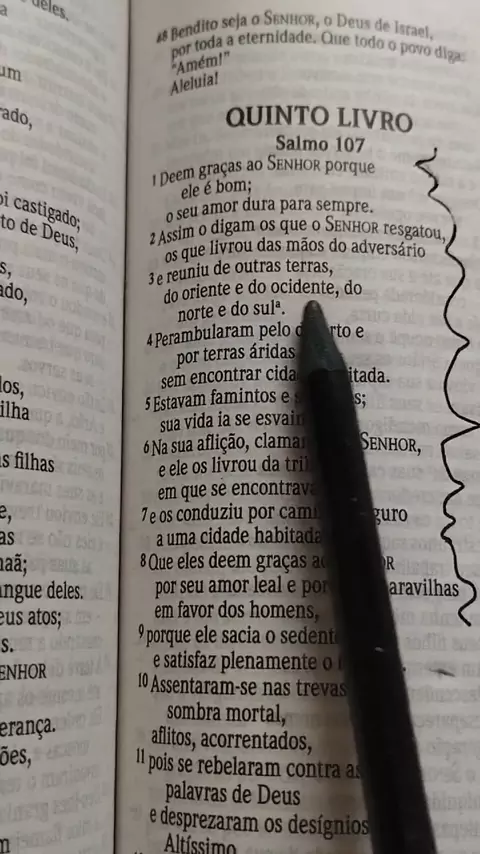 deles.
a
um
rado,
oi castigado;
to de Deus,
s,
ado,
los,
ilha
s filhas
e,
as
naã;
angue deles.
eus atos;
s.
ENHOR
erança.
ões,
m
48 Bendito seja o SENHOR, o Deus de Israel,
por toda a eternidade. Que todo o povo diga:
“Amém!”
Aleluia!
QUINTO LIVRO
Salmo 107
1 Deem graças ao SENHOR porque
ele é bom;
o seu amor dura para sempre.
2 Assim o digam os que o SENHOR resgatou,
os que livrou das mãos do adversário
3 e reuniu de outras terras,
do oriente e do ocidente, do
norte e do sulª.
4 Perambularam pelo d rto e
por terras áridas
sem encontrar cida itada.
5 Estavam famintos e s s;
sua vida ia se esvain
6 Na sua aflição, clama SENHOR,
e ele os livrou da trib
em que se encontrava
7 e os conduziu por cami guro
a uma cidade habitada
8 Que eles deem graças ao OR
por seu amor leal e por aravilhas
em favor dos homens,
9 porque ele sacia o sedent
e satisfaz plenamente o
10 Assentaram-se nas trevas
sombra mortal,
aflitos, acorrentados,
11 pois se rebelaram contra as
palavras de Deus
e desprezaram os desígnios
Altíssimo